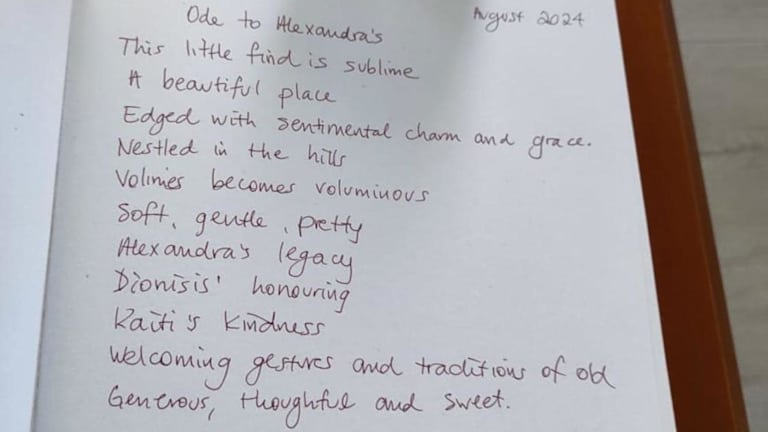 Ode to Alexandra's
August 2024
This little find is sublime
A beautiful place
Edged with sentimental charm and grace.
Nestled in the hills
Volimies becomes voluminous
Soft, gentle, pretty
Alexandra's legacy
Dionisis' honouring
Kaiti's kindness
Welcoming gestures and traditions of old
Generous, thoughtful and sweet.